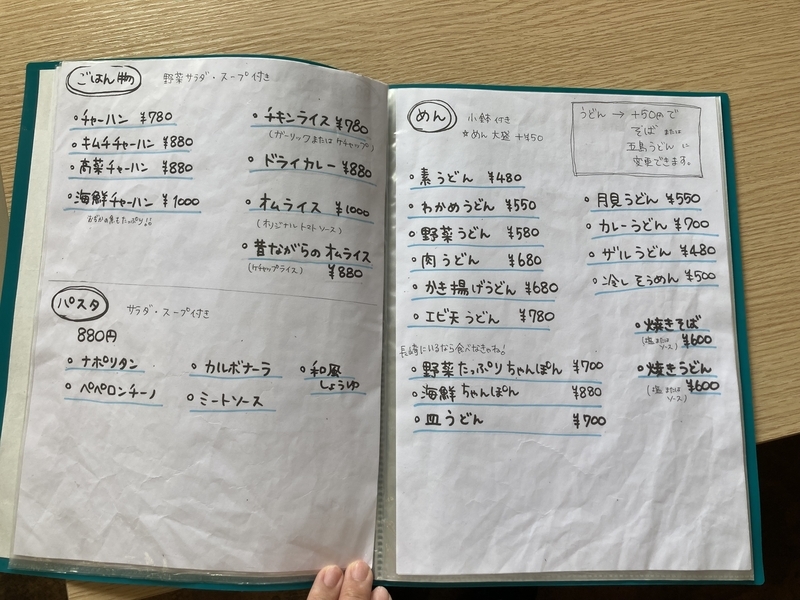 ごはん物
野菜サラダ・スープ付き
・チャーハン ¥780
・キムチチャーハン ¥880
・高菜チャーハン ¥880
・海鮮チャーハン ¥1000
・チキンライス ¥780
(ガーリックまたはケチャップ)
・ドライカレー ¥880
・オムライス ¥1000
(オリジナルトマトソース)
・昔ながらのオムライス
(ケチャップライス) ¥880
パスタ
サラダ・スープ付き
880円
・ナポリタン
・ペペロンチーノ
・カルボナーラ
・ミートソース
・和風
しょうゆ
めん
小鉢付き
☆めん大盛 +¥50
うどん → +50円で
そば または
五島うどんに
変更できます。
・素うどん ¥480
・わかめうどん ¥550
・野菜うどん ¥580
・肉うどん ¥680
・かき揚げうどん ¥680
・エビ天うどん ¥780
・月見うどん ¥550
・カレーうどん ¥700
・ザルうどん ¥480
・冷しそうめん ¥500
長崎にいるなら食べなきゃね!
・野菜たっぷりちゃんぽん ¥700
・海鮮ちゃんぽん ¥880
・皿うどん ¥700
・焼きそば
(塩または
ソース) ¥600
・焼きうどん
(塩または
ソース) ¥600